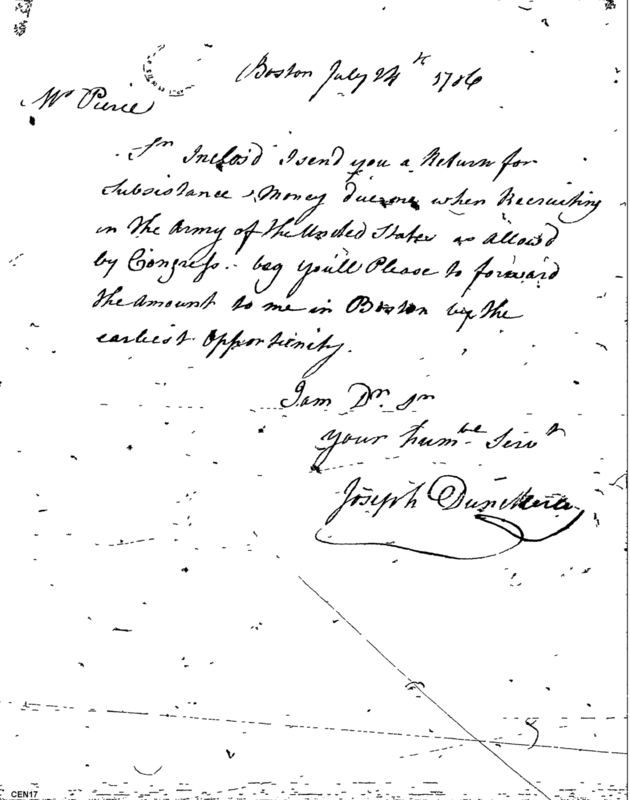 Boston July 24th 1786
Mr Pierce
Sir Inclos'd I send you a Return for
Subsistance Money due me when Recruiting
in the Army of the United States as Allow'd
by Congress.- beg you'll Please to forward
the amount to me in Boston by the
earliest Opportunity.
I am Dr Sir
your humbe Servt
Joseph Dunckerle
CEN17